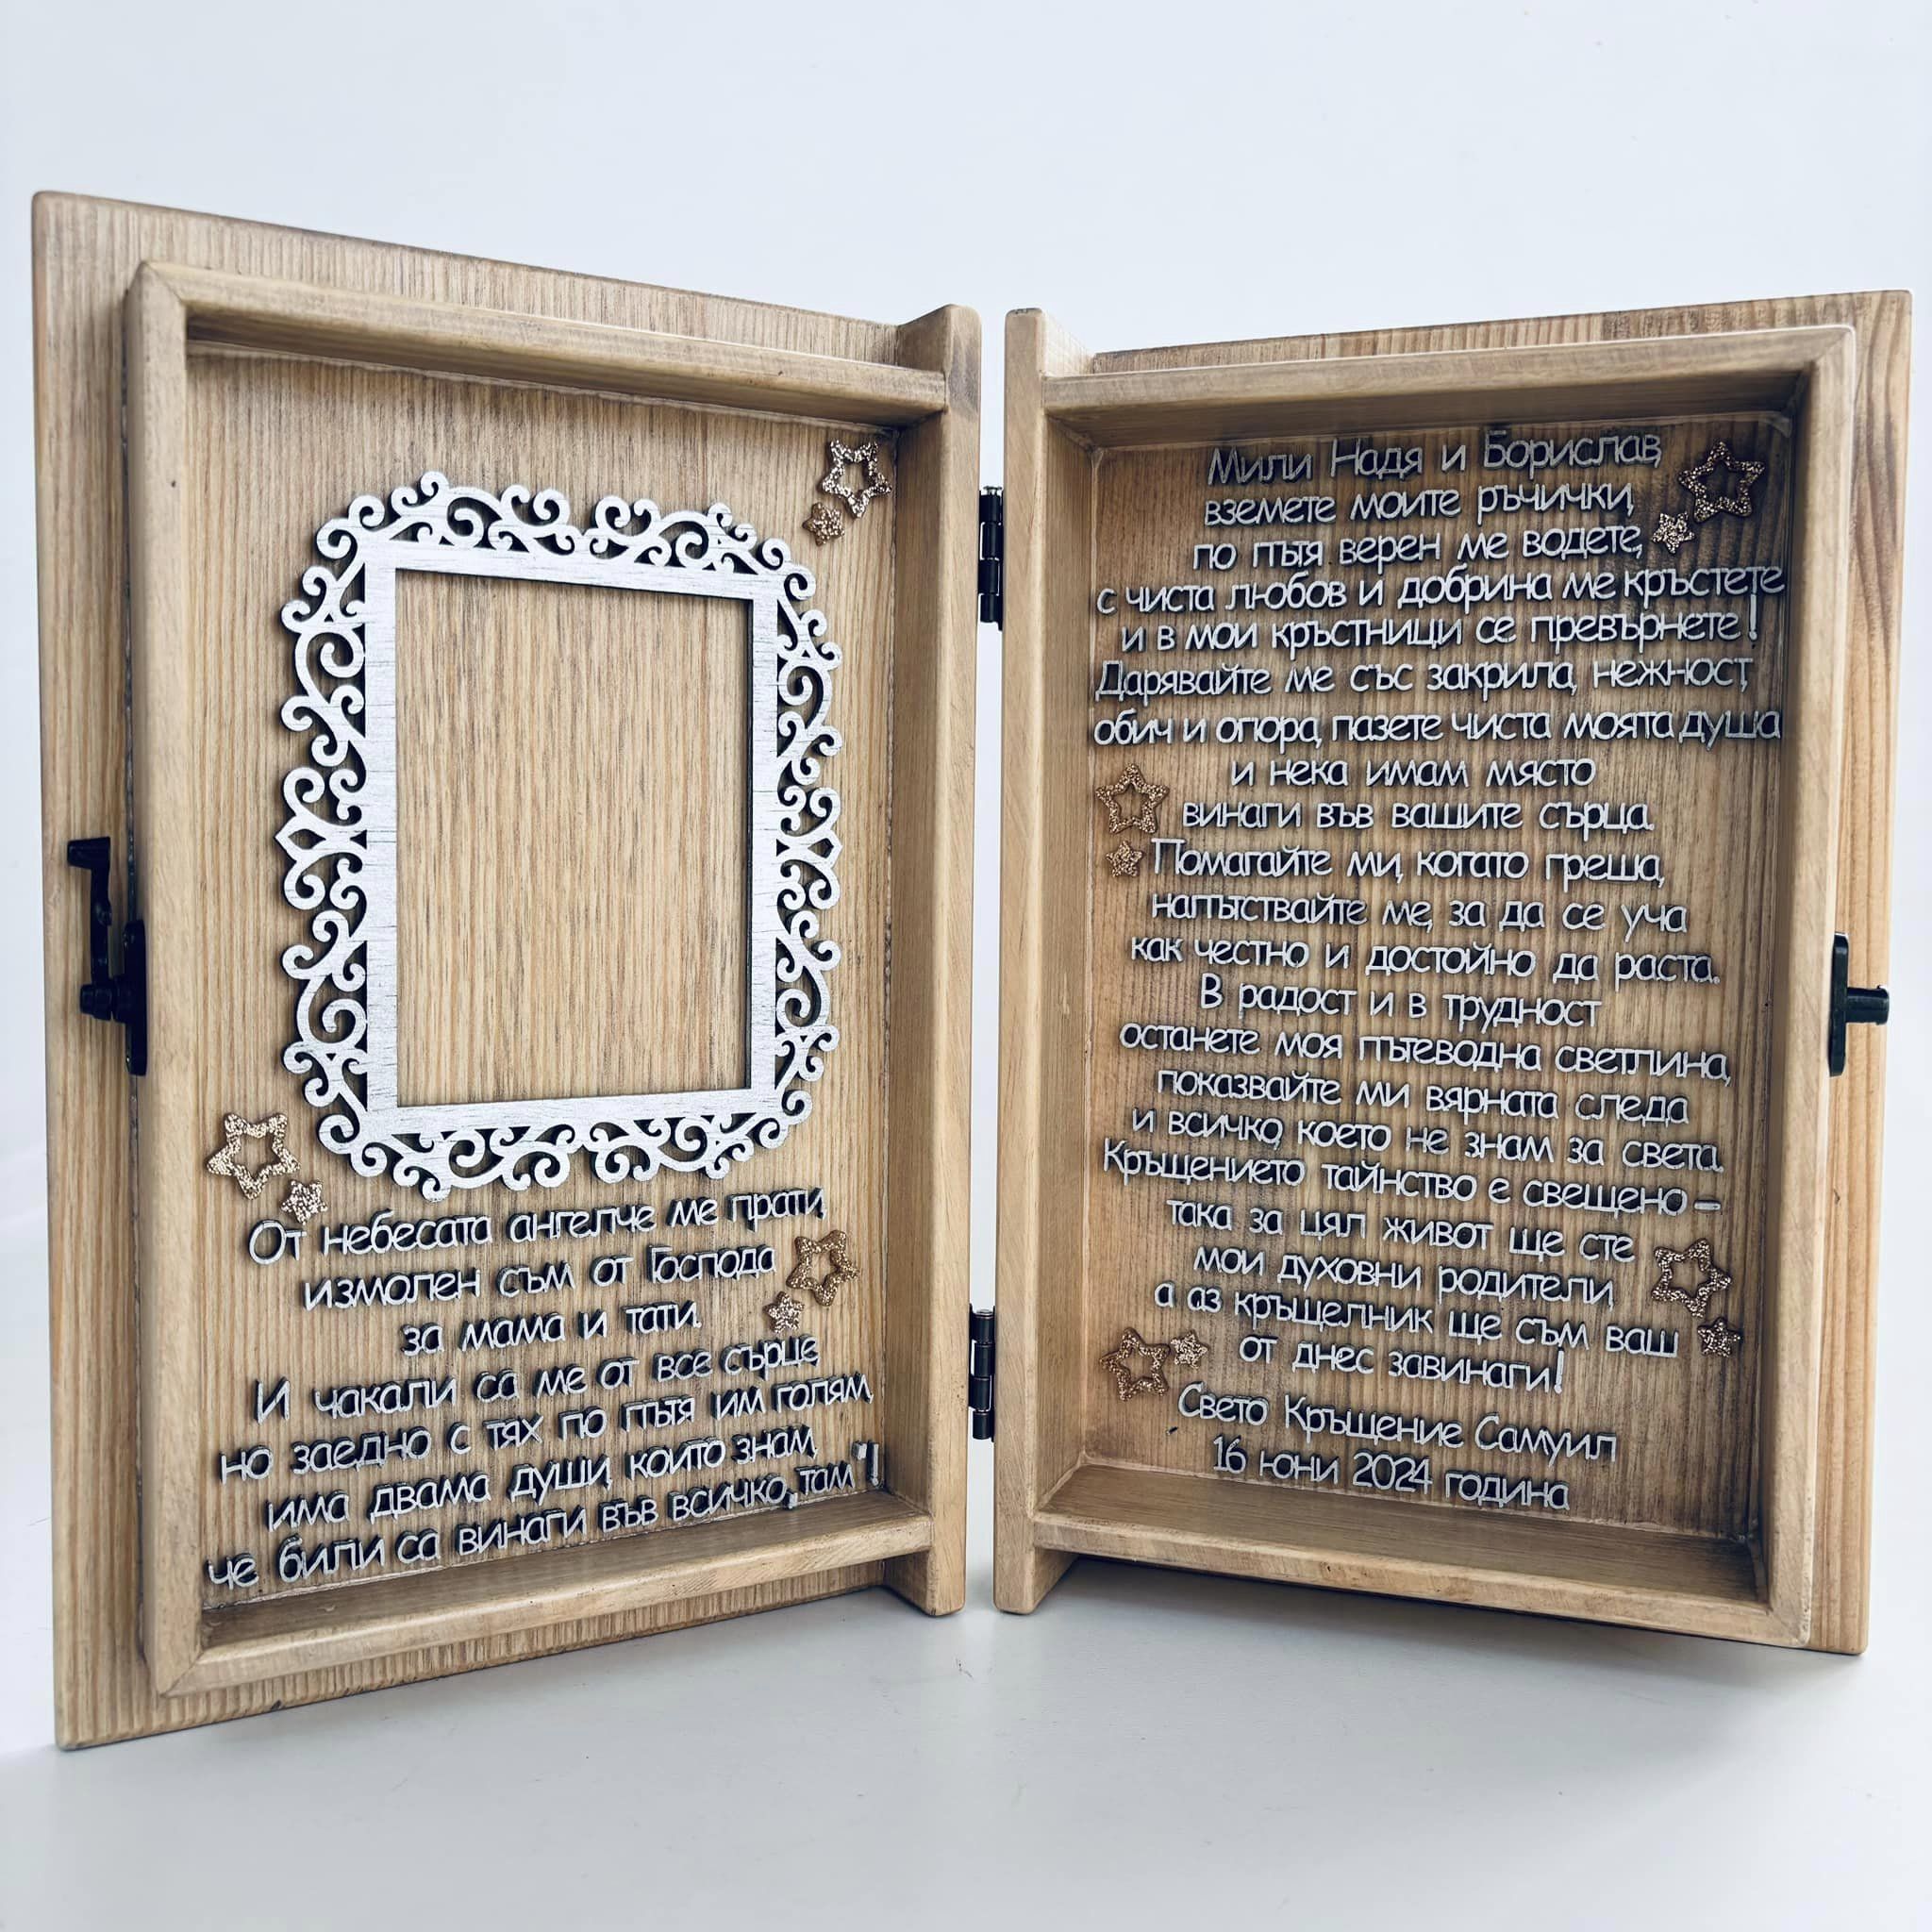 От небесата ангелче ме прати,
измолен съм от Господа
за мама и тати.
И чакали са ме от все сърце,
но заедно с тях по пътя им голям,
има двама души, които знам,
че били са винаги във всичко "там"!
Мили Надя и Борислав,
вземете моите ръчички,
по пътя верен ме водете,
с чиста любов и добрина ме кръстете
и в мои кръстници се превърнете!
Дарявайте ме със закрила, нежност,
обич и опора, пазете чиста моята душа
и нека имам място
винаги във вашите сърца.
Помагайте ми, когато греша,
напътствайте ме, за да се уча
как честно и достойно да раста.
В радост и в трудност
останете моя пътеводна светлина,
показвайте ми вярната следа
и всичко, което не знам за света.
Кръщението тайнство е свещено –
така за цял живот ще сте
мои духовни родители,
а аз кръщелник ще съм ваш
от днес завинаги!
Свето Кръщение Самуил
16 юни 2024 година